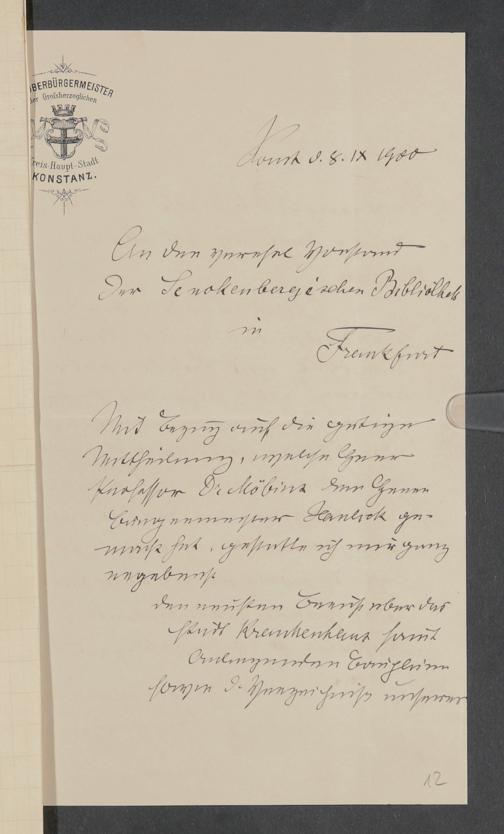 OBERBÜRGERMEISTER
der Großherzoglichen
Kreis-Haupt-Stadt
KONSTANZ.
Konst d. 8. IX 1900
An den verehrl Vorstand
Der Senckenbergischen Bibliothek
in
Frankfurt
Mit Bezug auf die gütige
Mittheilung, welche Herr
Professor Dr Möbius dem Herrn
Bürgermeister Haulick ge-
macht hat, gestatte ich mir ganz
ergebenst
den neusten Bericht über das
städt Krankenhaus samt
anliegenden Bauplänen
sowie d. Verzeichniß unserer
12